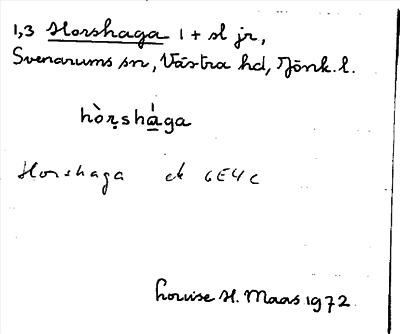 1,3 Horshaga 1 + sl jr,
Svenarums sn, Västra hd, Jönk. l.
hòṛshá̱ga
Horshaga ek 6E4c
Louise H. Maas 1972